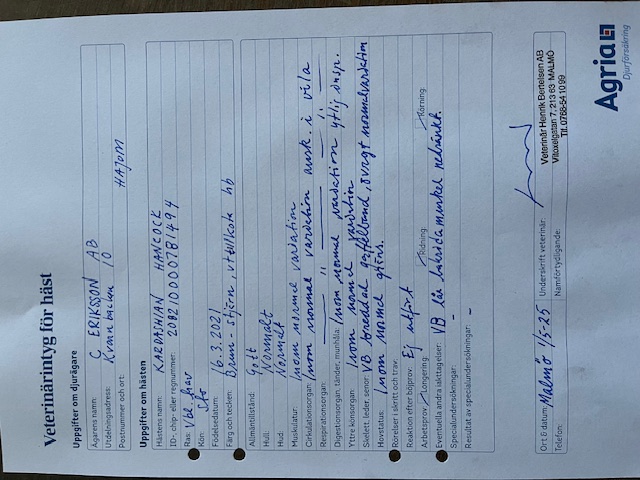 Veterinärintyg för häst
Uppgifter om djurägare
Ägarens namn: C ERIKSSON AB
Utdelningsadress: Kvarnbacken 10
Postnummer och ort: HAJOM
Uppgifter om hästen
Hästens namn: KARDASHIAN HANCOCK
ID- chip- eller regnummer: 208210000781494
Ras: Vbl. trav
Kön: Sto
Födelsedatum: 16.3.2021
Färg och tecken: brun - stjärn, vitkota hb
Allmäntillstånd: Gott
Hull: Normalt
Hud: Normalt
Muskulatur: Inom normal variation
Cirkulationsorgan: Inom normal variation ausk. i vila
Respirationsorgan: — " — — " —
Digestionsorgan, tänder, munhåla: Inom normal variation ytlig insp.
Yttre könsorgan: Inom normal variation
Skelett, leder, senor: VB breddad gaffelband, övrigt normalvariation
Hovstatus: Inom normal gräns.
Rörelser i skritt och trav:
Reaktion efter böjprov: Ej utfört
Arbetsprov: Longering: Ridning: Körning:
Eventuella andra iakttagelser: VB muskel
Specialundersökningar: -
Resultat av specialundersökningar: -
Ort & datum: Malmö 1/5-25
Telefon:
Underskrift veterinär:
Namnförtydligande:
Veterinär Henrik Bertelsen AB
213 63 MALMÖ
Tlf. 0768-54 10 99
Agria
Djurförsäkring